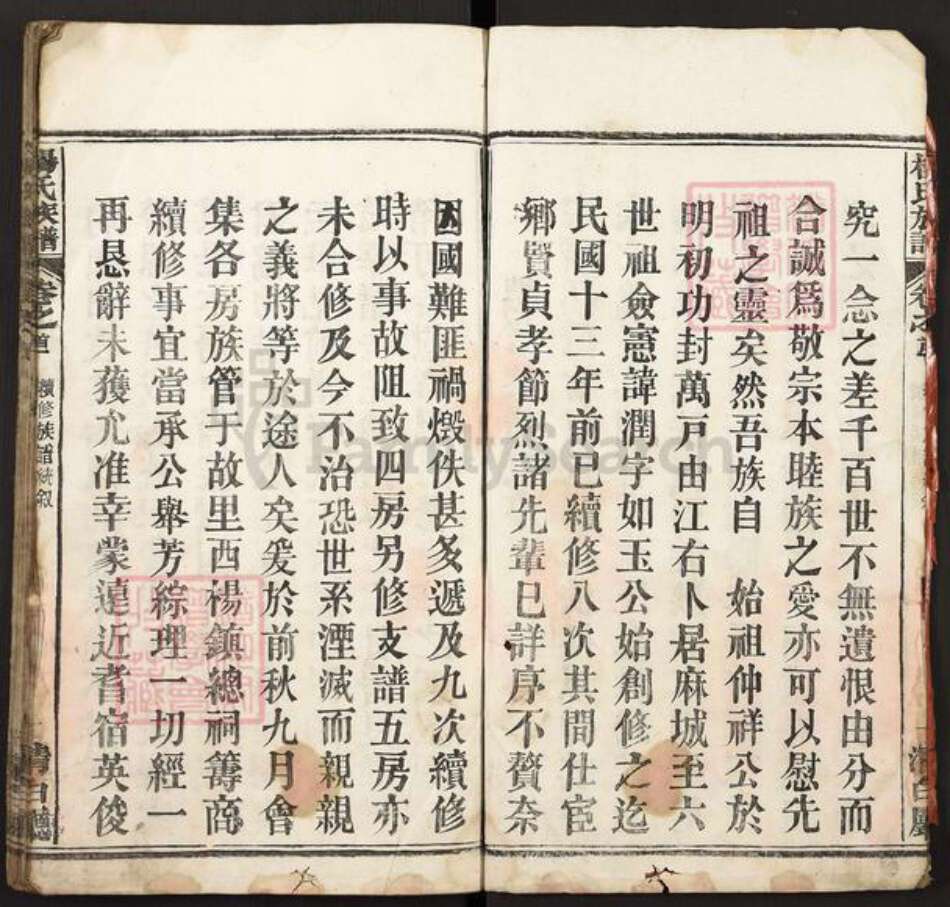 究一念之差千百世不無遺恨由分而
合誠爲敬宗本睦族之愛亦可以慰先
祖之靈矣然吾族自　始祖仲祥公於
明初功封萬戸由江右卜居麻城至六
世祖僉憲諱潤字如玉公始創修之迄
民國十三年前已續修八次其間仕宦
鄉賢貞孝節烈諸先輩已詳序不贅奈
因國難匪禍燬佚甚多遞及九次續修
時以事故阻致四房另修支譜五房亦
未合修及今不治恐世系湮滅而親親
之義將等於途人矣爰於前秋九月會
集各房族管于故里西楊鎮總祠籌商
續修事宜當承公舉芳綜理一切經一
再恳辭未蒦允准幸蒙遠近耆宿英俊
楊氏族譜
卷之首
續修族譜統叙
清白
FamilySearch